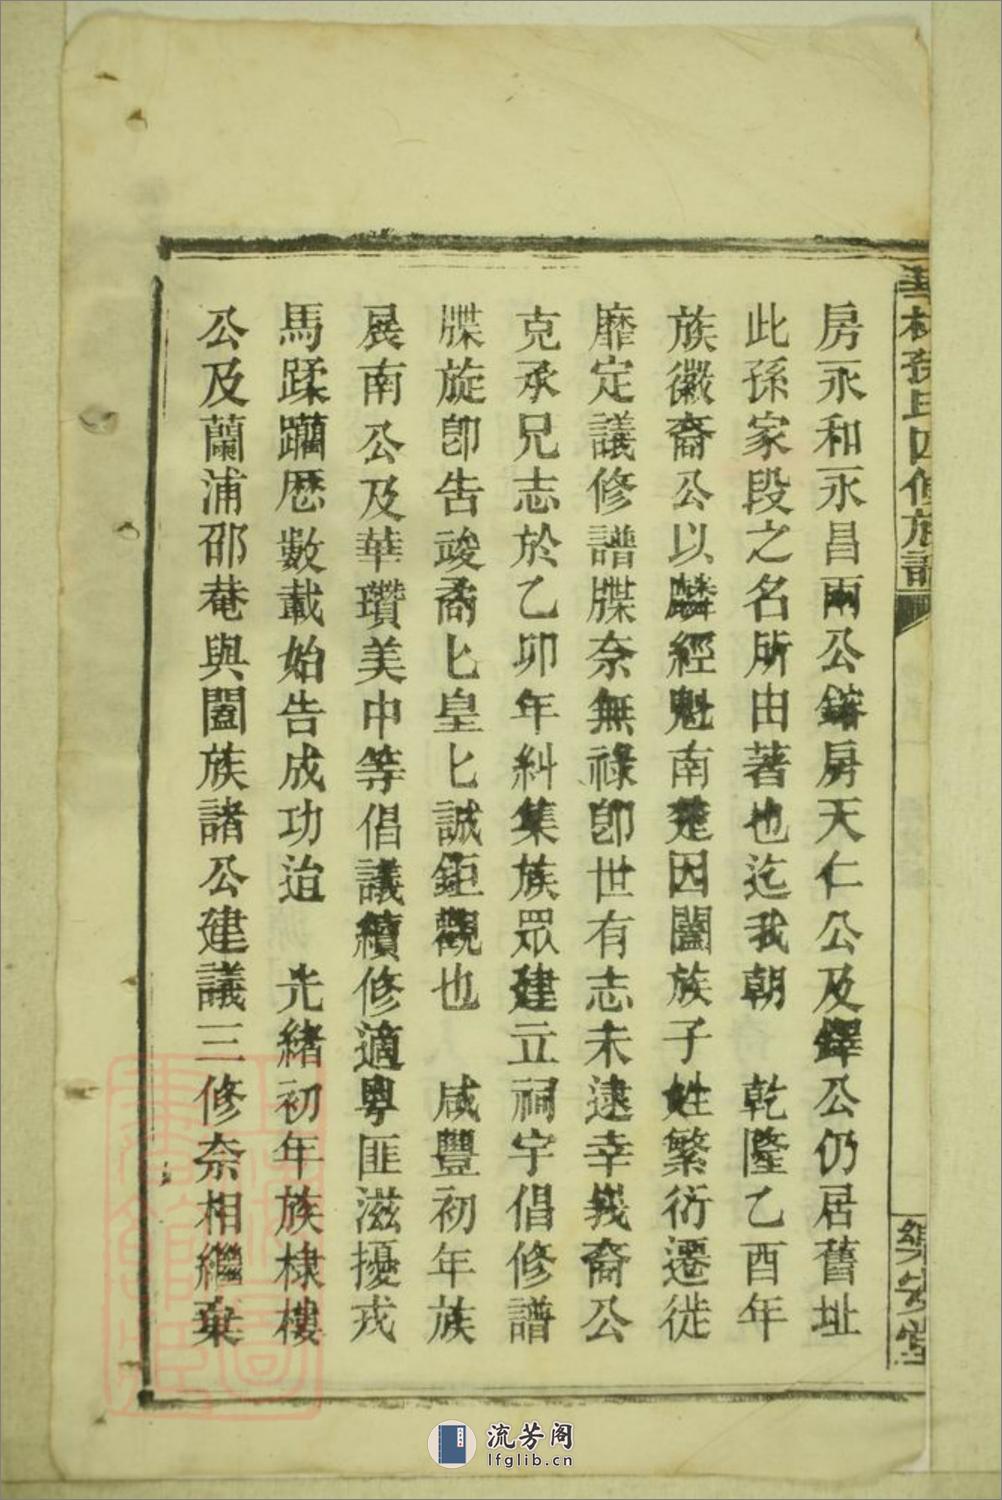 房永和永昌兩公鎔房天仁公及鐸公仍居舊址
此孫家段之名所由著也迄我朝 乾隆乙酉年
族徽裔公以麟經魁南楚因闔族子姓繁衍遷徙
靡定議修譜牒奈無祿卽世有志未逮幸峩裔公
克承兄志於乙卯年糾集族眾建立祠宇倡修譜
牒旋卽告竣矞匕皇匕誠鉅觀也 咸豐初年族
展南公及華瓚美中等倡議續修適粵匪滋擾戎
馬蹂躪歷數載始告成功迨 光緒初年族棣樓
公及蘭浦邵菴與闔族諸公建議三修奈相繼棄
孫氏四修族譜
樂安堂
流芳阁
lfglib.cn